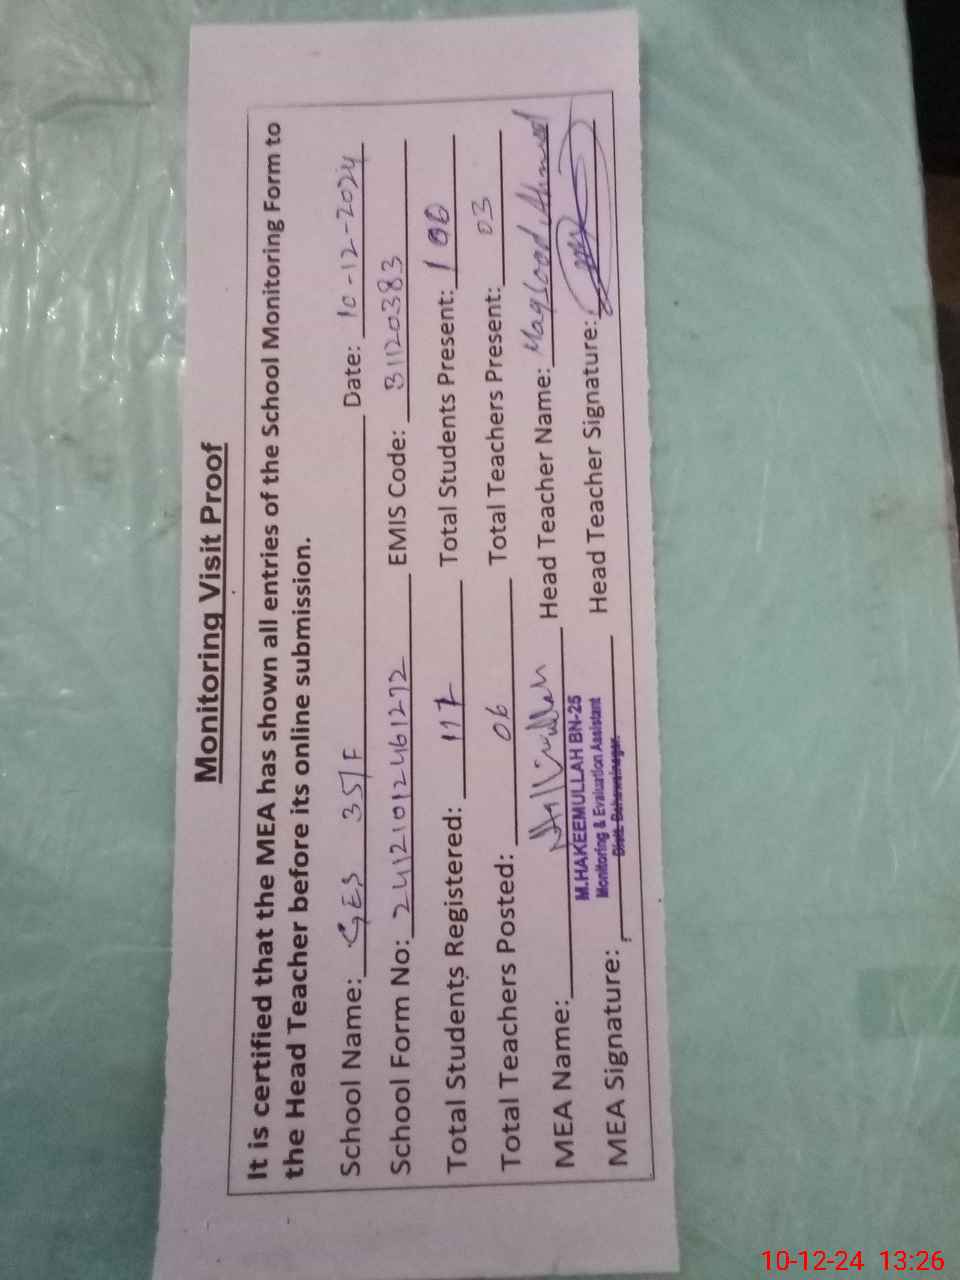 Monitoring Visit Proof
It is certified that the MEA has shown all entries of the School Monitoring Form to
the Head Teacher before its online submission.
School Name: GES 35/F Date: 10-12-2024
School Form No: 24121012461272 EMIS Code: 31120383
Total Students Registered: 117 Total Students Present: 100
Total Teachers Posted: 06 Total Teachers Present: 03
MEA Name: Head Teacher Name: Maqsood Ahmed
M.HAKEEMULLAH BN-25
Monitoring & Evaluation Assistant
Distt. Bahawalnagar.
MEA Signature: Head Teacher Signature:
10-12-24 13:26